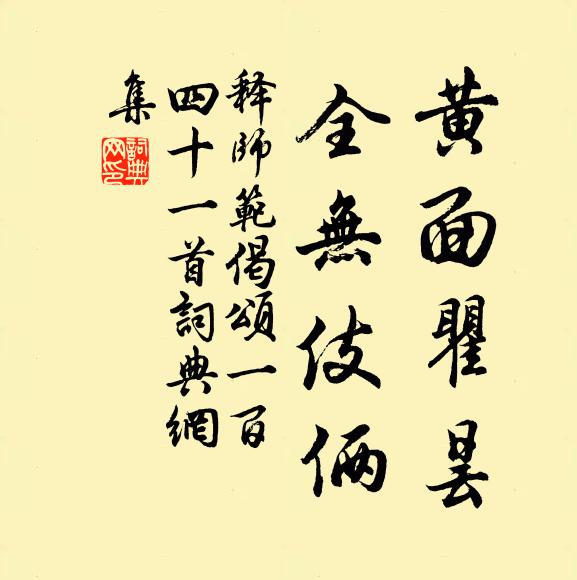 黄面瞿曇
全無伎倆
释師範偈頌一百
四十一首詞典網
集
詞典
网印